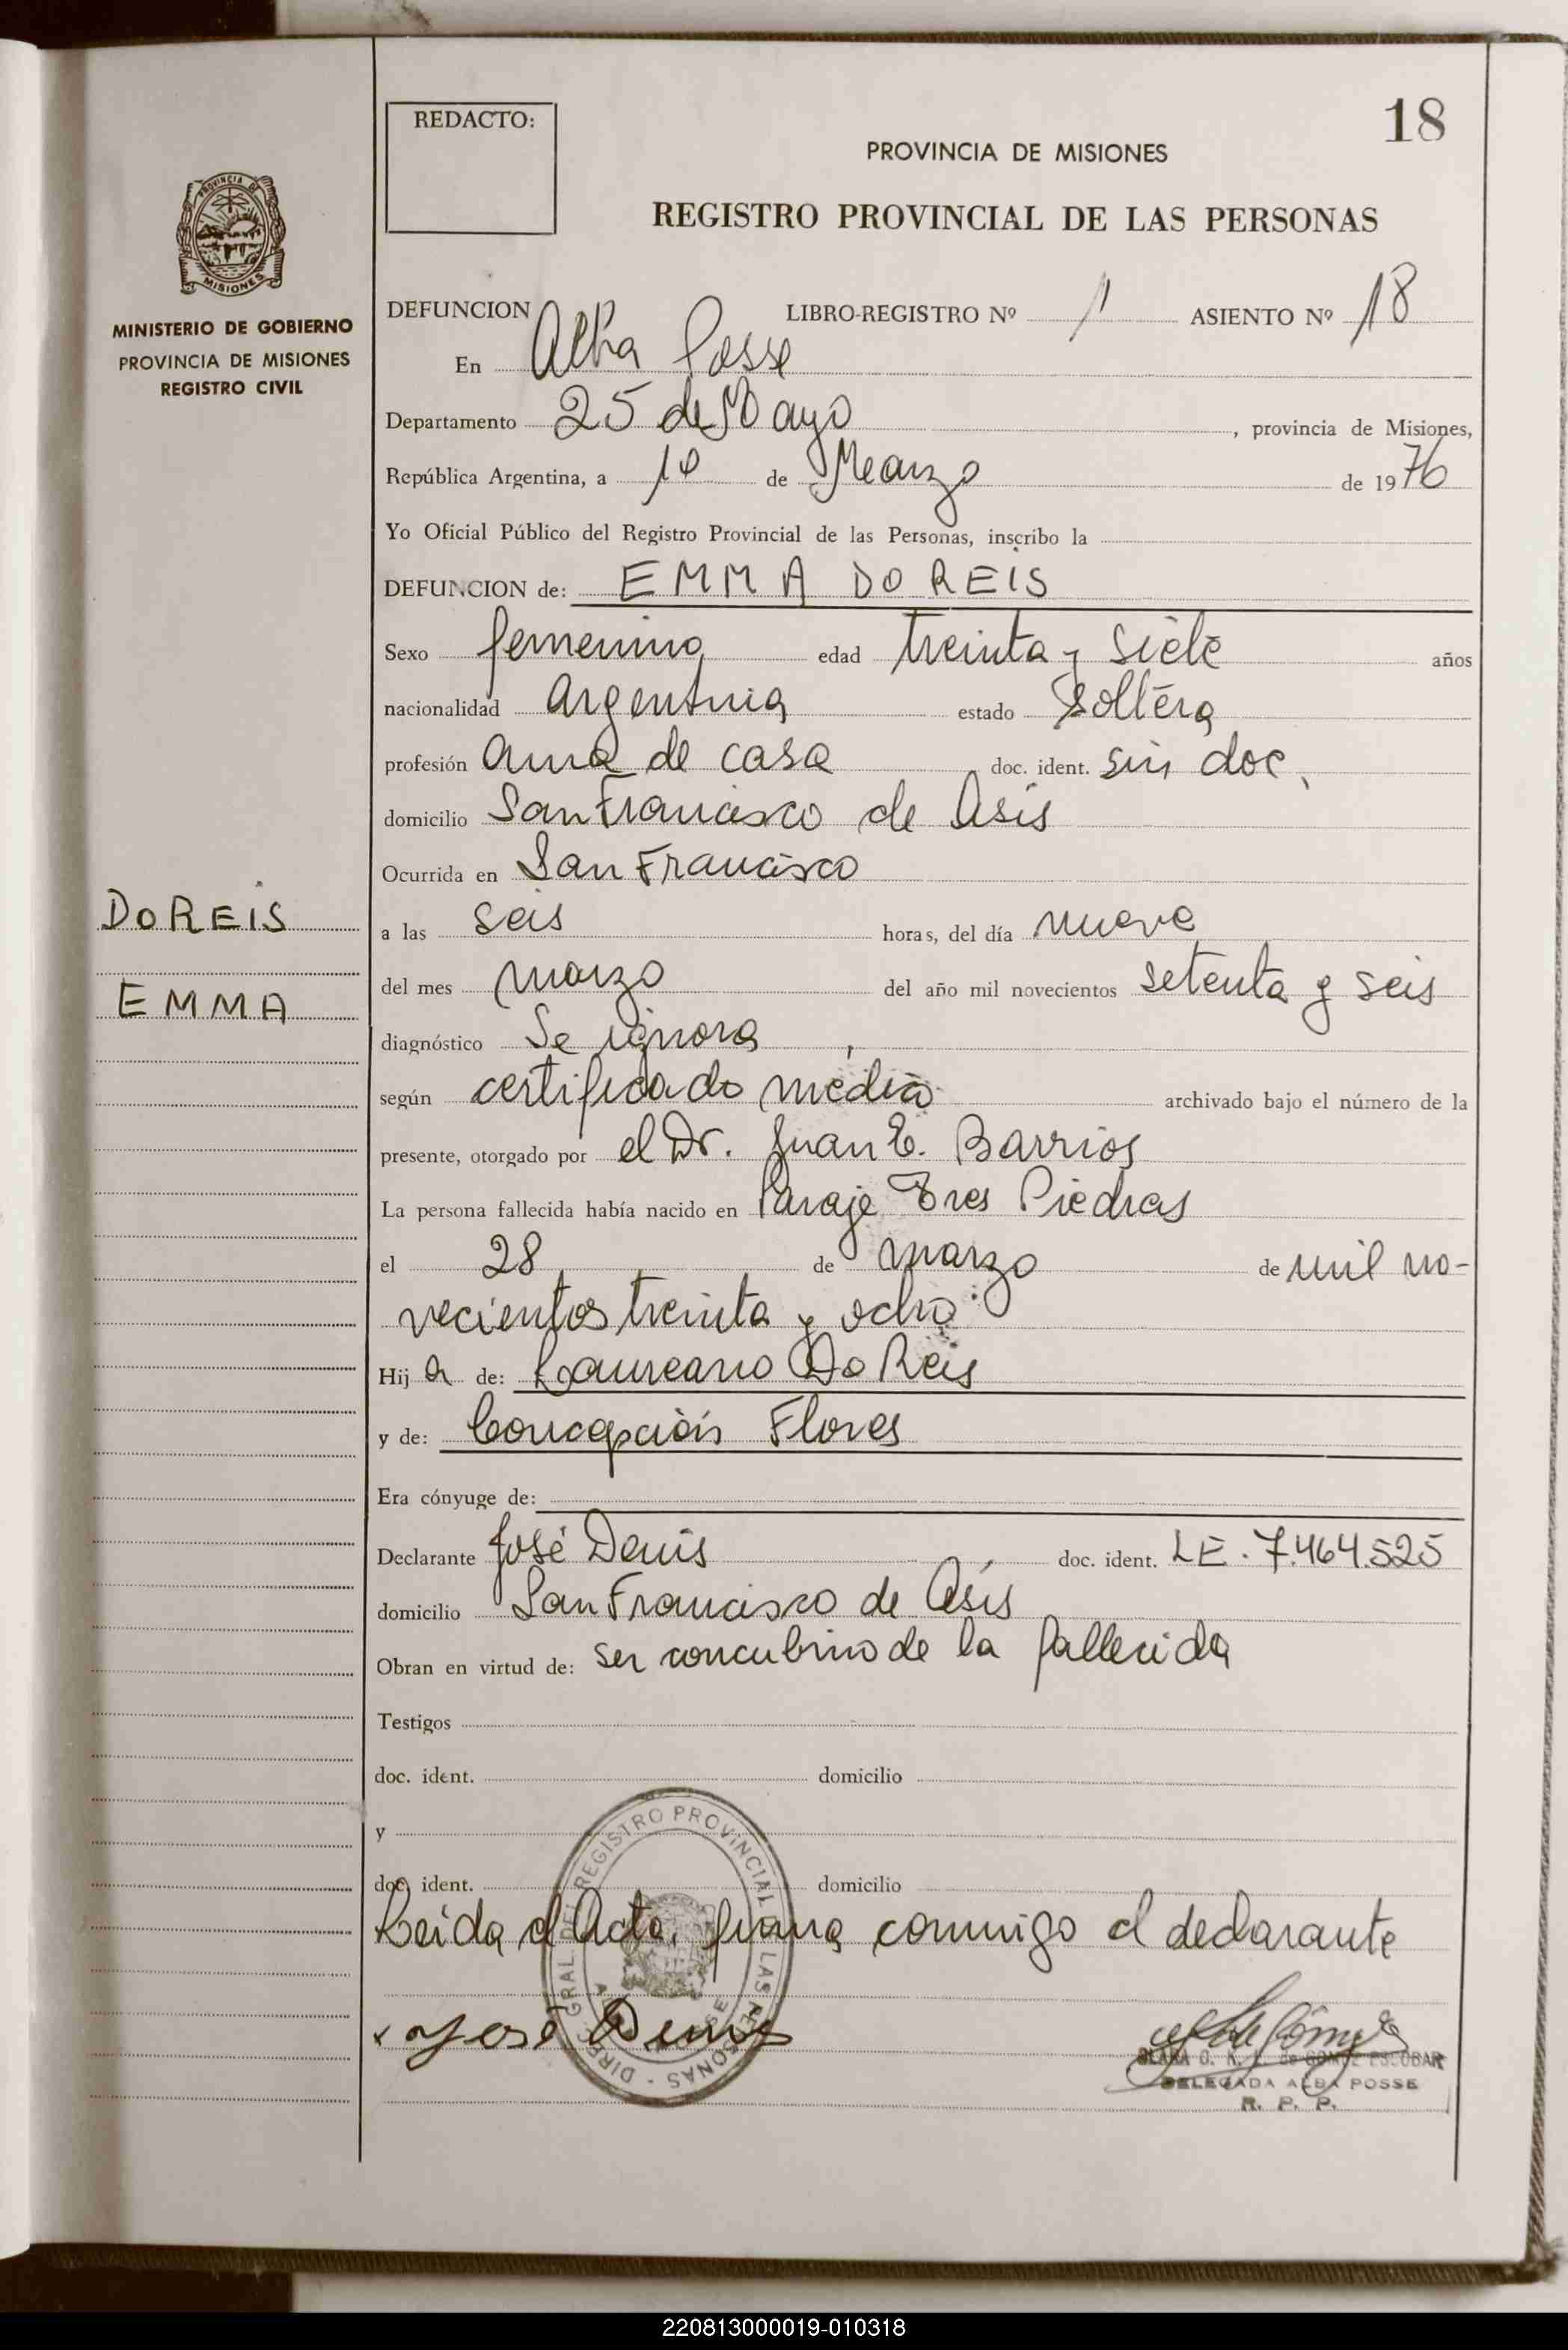 18
REDACTO:
PROVINCIA DE MISIONES
REGISTRO PROVINCIAL DE LAS PERSONAS
PROVINCIA DE
MISIONES
MINISTERIO DE GOBIERNO
PROVINCIA DE MISIONES
REGISTRO CIVIL
DEFUNCION LIBRO-REGISTRO Nº 1 ASIENTO Nº 18
En Alba Posse
Departamento 25 de Mayo, provincia de Misiones,
República Argentina, a 10 de Marzo de 1976
Yo Oficial Público del Registro Provincial de las Personas, inscribo la
DEFUNCION de: EMMA DO REIS
Sexo femenino edad treinta y siete años
nacionalidad argentina estado soltera
profesión ama de casa doc. ident. sin doc.
domicilio San Francisco de Asís
Ocurrida en San Francisco
DO REIS
a las seis horas, del día nueve
EMMA
del mes marzo del año mil novecientos setenta y seis
diagnóstico Se ignora
según certificado médico archivado bajo el número de la
presente, otorgado por el Dr. Juan E. Barrios
La persona fallecida había nacido en Paraje Tres Piedras
el 28 de marzo de mil no-
vecientos treinta y ocho
Hija de: Laureano Do Reis
y de: Concepción Flores
Era cónyuge de:
Declarante José Denis doc. ident. LE. 7.464.525
domicilio San Francisco de Asís
Obran en virtud de: ser concubino de la fallecida
Testigos
doc. ident. domicilio
y
doc. ident. domicilio
Leida el Acta, firma conmigo el declarante
x José Denis
DIREC. GRAL. DEL REGISTRO PROVINCIAL DE LAS PERSONAS
CLARA O. K. L. de GOMEZ ESCOBAR
DELEGADA ALBA POSSE
R. P. P.
220813000019-010318